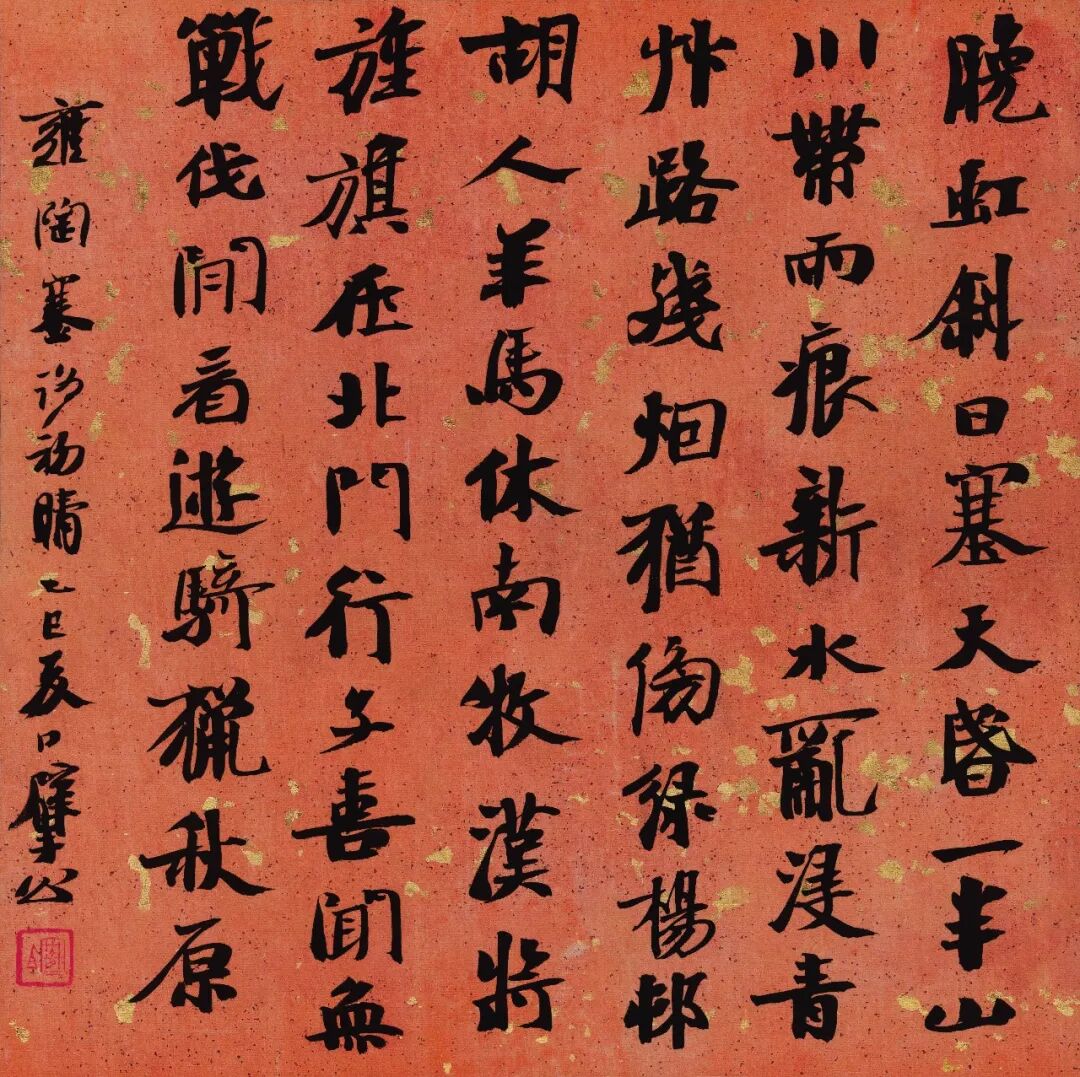 晚虹斜日塞天昏一半山
川帶雨痕新水亂浸青
艸路殘烟猶傍綠楊邨
胡人羊馬休南牧漢將
旌旗在北門行子喜聞無
戰伐閒看遊騎獵秋原
雍陶塞路初晴乙巳夏日